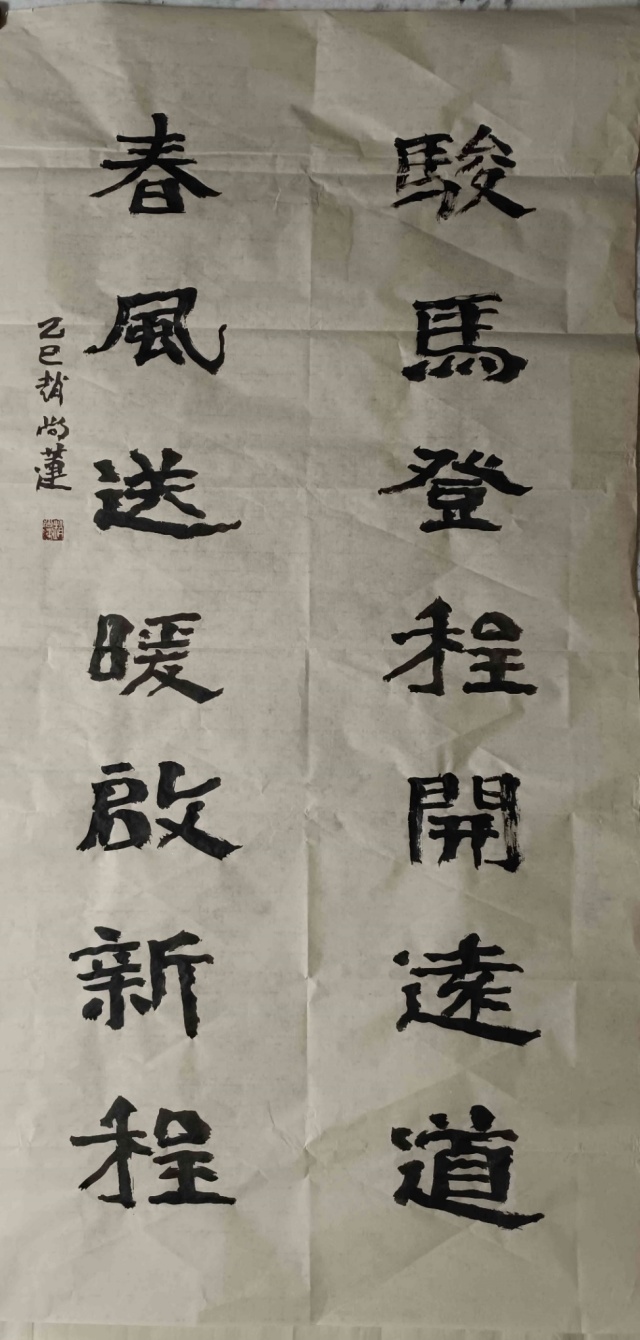 駿馬登程開遠道
春風送暖啟新程
乙巳趙尚蓮